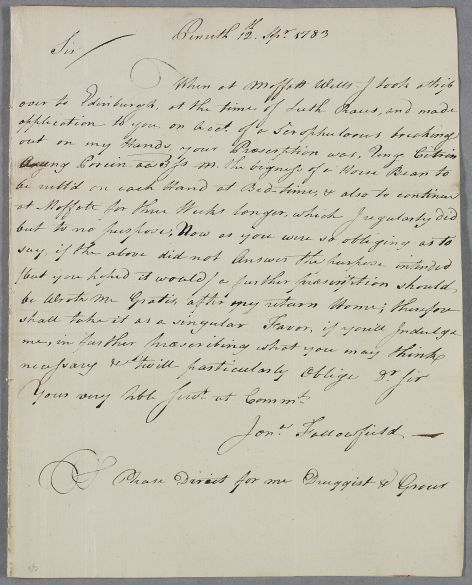 Penrith 12th. Apr. 1783
Sir
When at Moffatt Wells I took a trip
over to Edinburgh, at the time of Leith Races, and made
application to you on acct. of a Scrophulorous breaking
out on my Hands, your Prescription was, Ung Citrin
Axung Porcin aa ʒss M. the bigness of a Horse Bean to
be rubb'd on each Hand at Bed-time, & also to continue
at Moffatt for three Weeks longer, which I regularly did
but to no purpose; Now as you were so obliging as to
say, if the above did not Answer the purpose intended
(but you hoped it would) a further prescription should
be Wrote me Gratis after my return Home; therefore
shall take it as a singular Favor, if you'll Indulge
me, in further prescribing what you may think
necessary & 'twill particularly Oblige Dr. Sir
Your very hble Servt. at Commd.
Jont. Fallowfield
PS Please Direct for me Druggist & Grocer